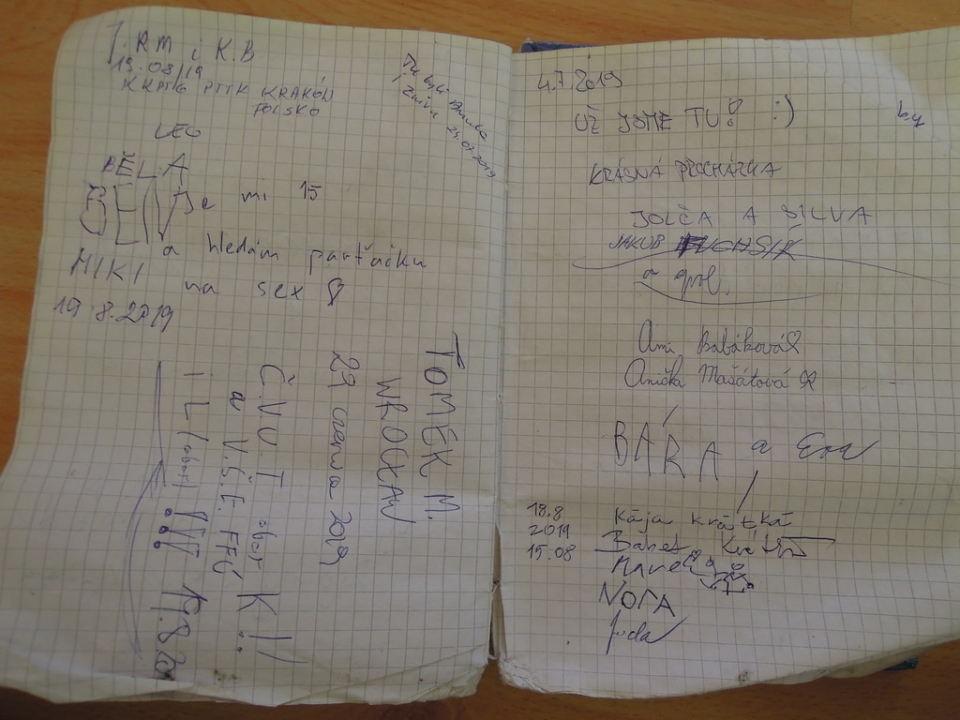 J. RM i K.B
19.08/19
KKTG PTTK KRAKÓW
POLSKO
Tu byli
23.07.2019
LEO
BĚLA
BEN
Je mi 15
a hledám parťačku
MIKI na sex
19.8.2019
TOMEK M.
WROCŁAW
29 czerwca 2019
Č.V.U.T obor K!!
a V.Š.E. FFÚ
i L
19.8.20
4.7.2019
UŽ JSME TU! :)
by
KRÁSNÁ PROCHÁZKA
JOLČA A SILVA
JAKUB
a spol.
Ani Babáková
Anička Mašátová
BÁRA a Eva
18.8
2019
15.08
Kája Krátká
NORA